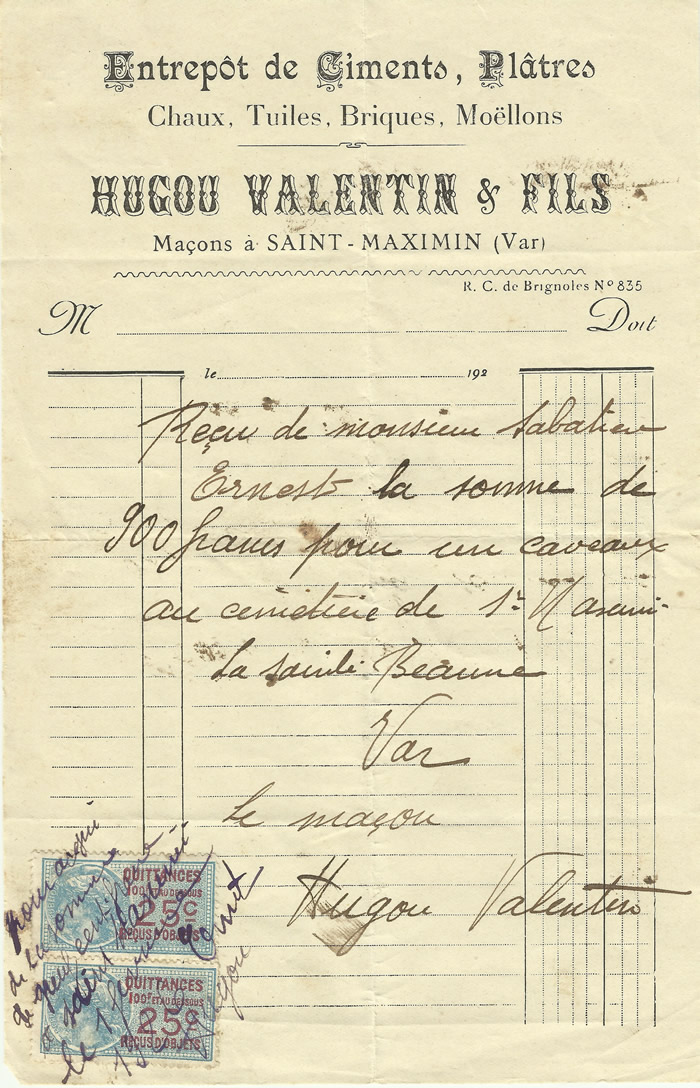 Entrepôt de Ciments, Plâtres
Chaux, Tuiles, Briques, Moëllons
HUGOU VALENTIN & FILS
Maçons à SAINT-MAXIMIN (Var)
R. C. de Brignoles Nº 835
M Doit
le 192
Reçu de monsieur Sabatier
Ernest la somme de
900 francs pour un caveaux
au cemetière de St Maximin
La Sainte Beaume
Var
Le maçon
Hugou Valentin
QUITTANCES
100F ET AU DESSOUS
25c
REÇUS D'OBJETS
QUITTANCES
100F ET AU DESSOUS
25c
REÇUS D'OBJETS
pour acquit
de la somme
de neuf cent
saint
le 1
Hugou